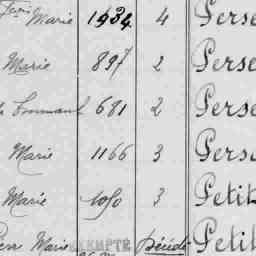 Marie 1934 4 Perse
Marie 897 2 Perse
681 2 Perse
Marie 1166 3 Perse
Marie 1050 3 Petit
Marie EXEMPTÉ Décédé Petit